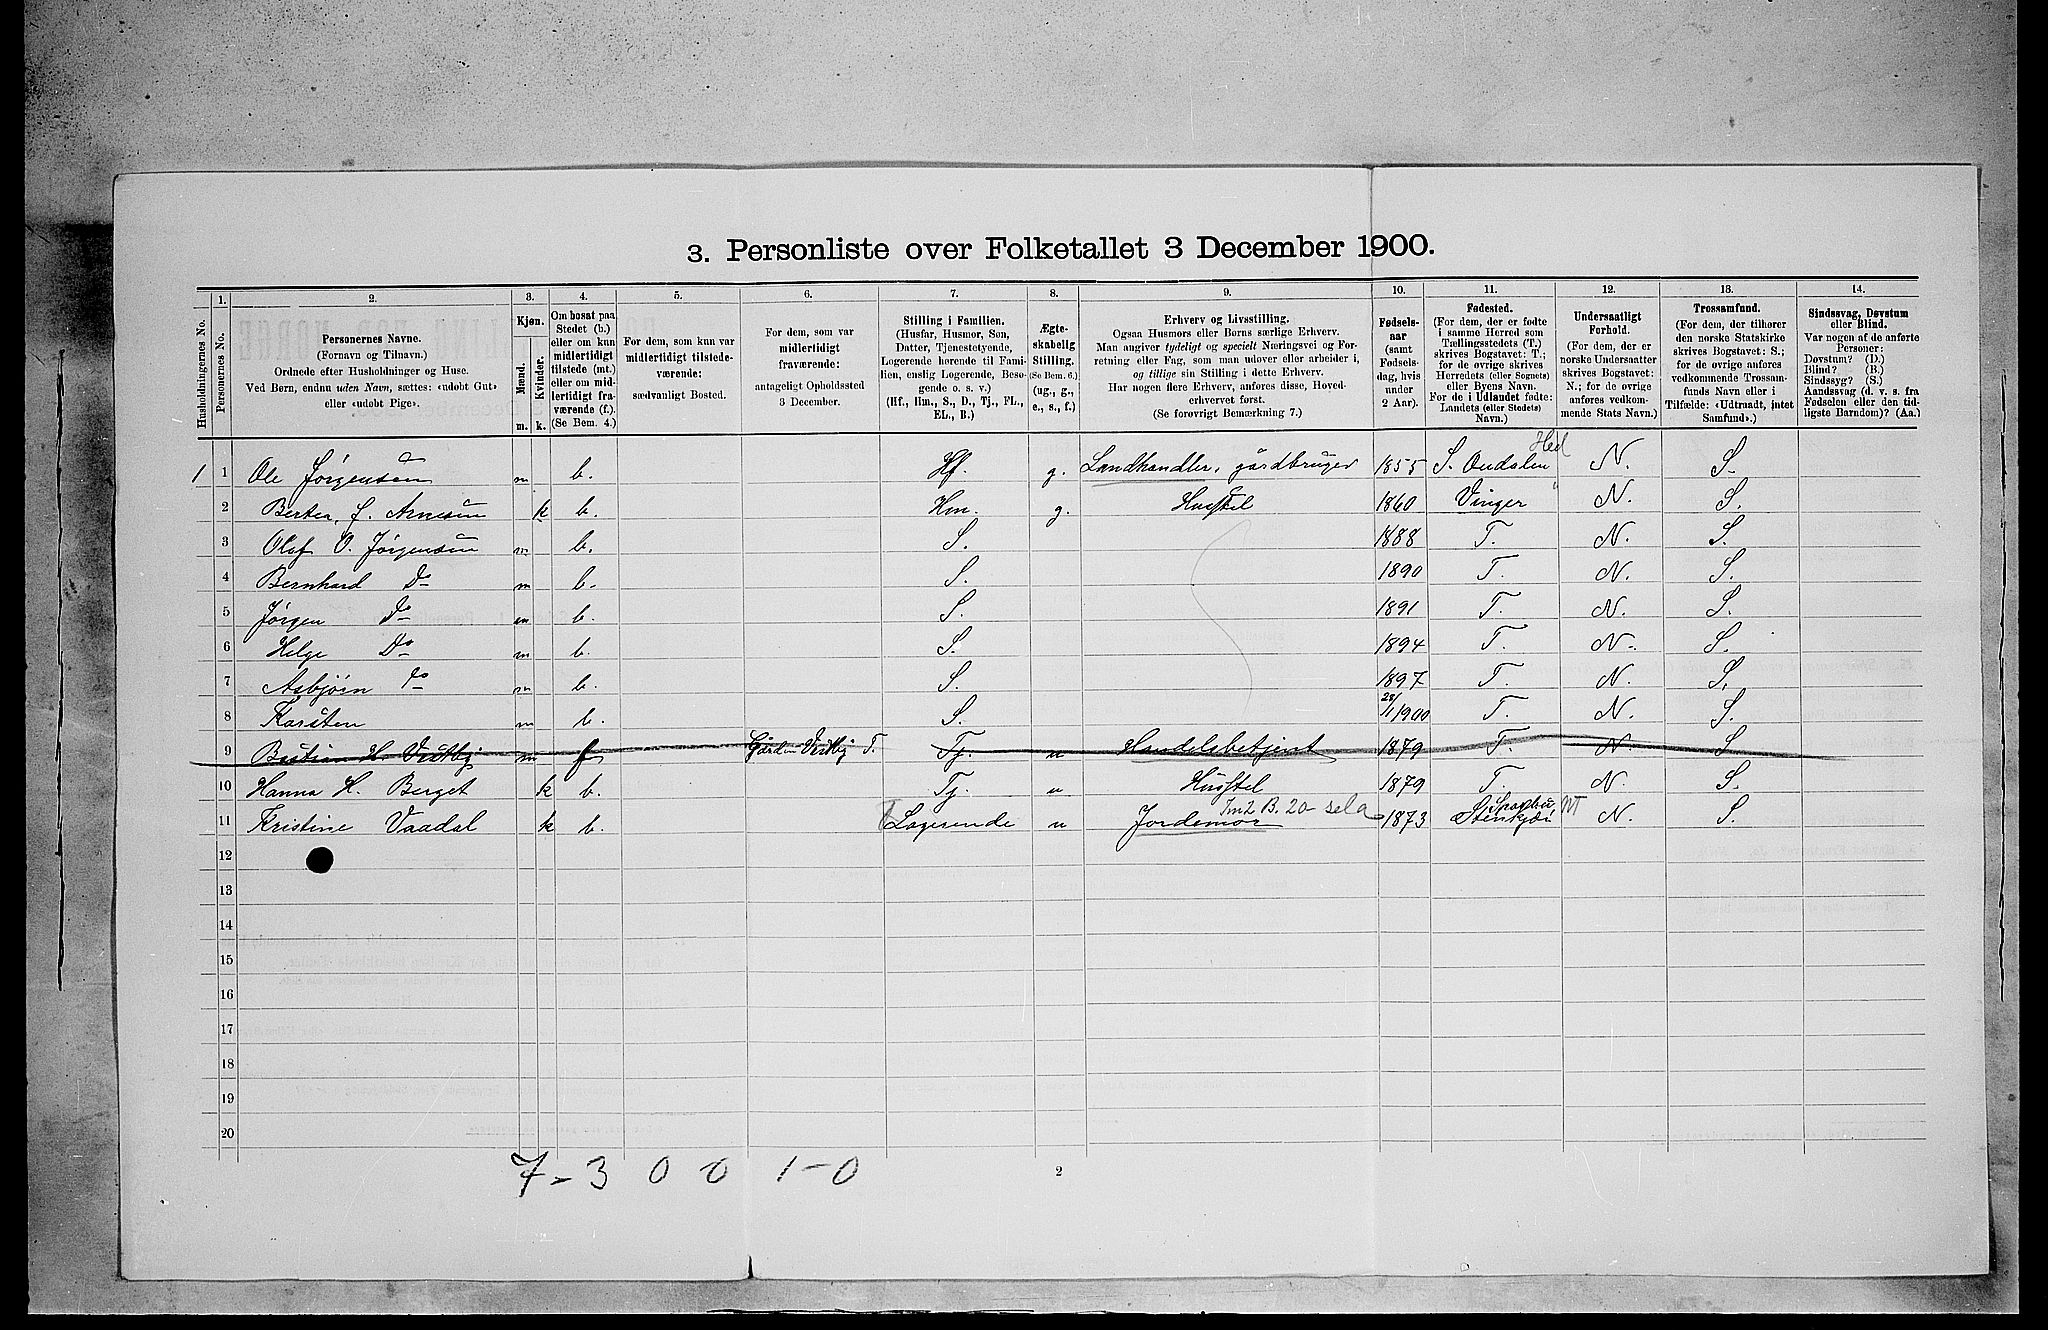 3. Personliste over Folketallet 3 December 1900.
1. 2. 3. 4. 5. 6. 7. 8. 9. 10. 11. 12. 13. 14.
Husholdningernes No.
Personernes No.
Personernes Navne.
(Fornavn og Tilnavn.)
Ordnede efter Husholdninger og Huse.
Ved Børn, endnu uden Navn, sættes: «udøbt Gut»
eller «udøbt Pige».
Kjøn.
Mænd.
Kvinder.
m. k.
Om bosat paa
Stedet (b.)
eller om kun
midlertidigt
tilstede (mt.)
eller om mid-
lertidigt fra-
værende (f.)
(Se Bem. 4.)
For dem, som kun var
midlertidigt tilstede-
værende:
sædvanligt Bosted.
For dem, som var
midlertidigt
fraværende:
antageligt Opholdssted
3 December.
Stilling i Familien.
(Husfar, Husmor, Søn,
Datter, Tjenestetyende,
Logerende hørende til Fami-
lien, enslig Logerende, Besø-
gende o. s. v.)
(Hf., Hm., S., D., Tj., FL.,
EL., B.)
Ægte-
skabelig
Stilling.
(Se Bem. 6.)
(ug., g.,
e., s., f.)
Erhverv og Livsstilling.
Ogsaa Husmors eller Børns særlige Erhverv.
Man angiver tydeligt og specielt Næringsvei og For-
retning eller Fag, som man udøver eller arbeider i,
og tillige sin Stilling i dette Erhverv.
Har nogen flere Erhverv, anføres disse, Hoved-
erhvervet først.
(Se forøvrigt Bemærkning 7.)
Fødsels-
aar
(samt
Fødsels-
dag, hvis
under
2 Aar).
Fødested.
(For dem, der er fødte
i samme Herred som
Tællingsstedets (T.)
skrives Bogstavet: T.;
for de øvrige skrives
Herredets (eller Sognets)
eller Byens Navn.
For de i Udlandet fødte:
Landets (eller Stedets)
Navn.)
Undersaatligt
Forhold.
(For dem, der er
norske Undersaatter
skrives Bogstavet:
N.; for de øvrige
anføres vedkom-
mende Stats Navn.)
Trossamfund.
(For dem, der tilhører
den norske Statskirke
skrives Bogstavet: S.;
for de øvrige anføres
vedkommende Trossam-
funds Navn eller i
Tilfælde: «Udtraadt, intet
Samfund».)
Sindssvag, Døvstum
eller Blind.
Var nogen af de anførte
Personer:
Døvstum? (D.)
Blind? (B.)
Sindssyg? (S.)
Aandssvag (d. v. s. fra
Fødselen eller den tid-
ligste Barndom)? (Aa.)
1 1 Ole Jørgensen m b. Hf. g. Landhandler, gårdbruger 1855 S. Oudalen Hed N. S.
2 k b. Hm. g. Husstel 1860 Vinger " N. S.
3 Olaf O. Jørgensen m b. S. 1888 T. N. S.
4 Bernhard Do m b. S. 1890 T. N. S.
5 Jørgen Do m b. S. 1891 T. N. S.
6 Helge Do m b. S. 1894 T. N. S.
7 Asbjørn do m b. S. 1897 T. N. S.
8 Karsten m b. S. 28/1 1900 T. N. S.
9 H. Vestby m f Gården Vestby T. Tj. u Handelsbetjent 1879 T. N. S
10 Hanna H. Berget k b. Tj. u Husstel 1879 T. N. S.
11 Kristine Vaadal k b. Logerende u Jordemor 1873 Stenkjær N. S.
12
13
14
15
16
17
18
19
20
7-3 0 0 1-0
2